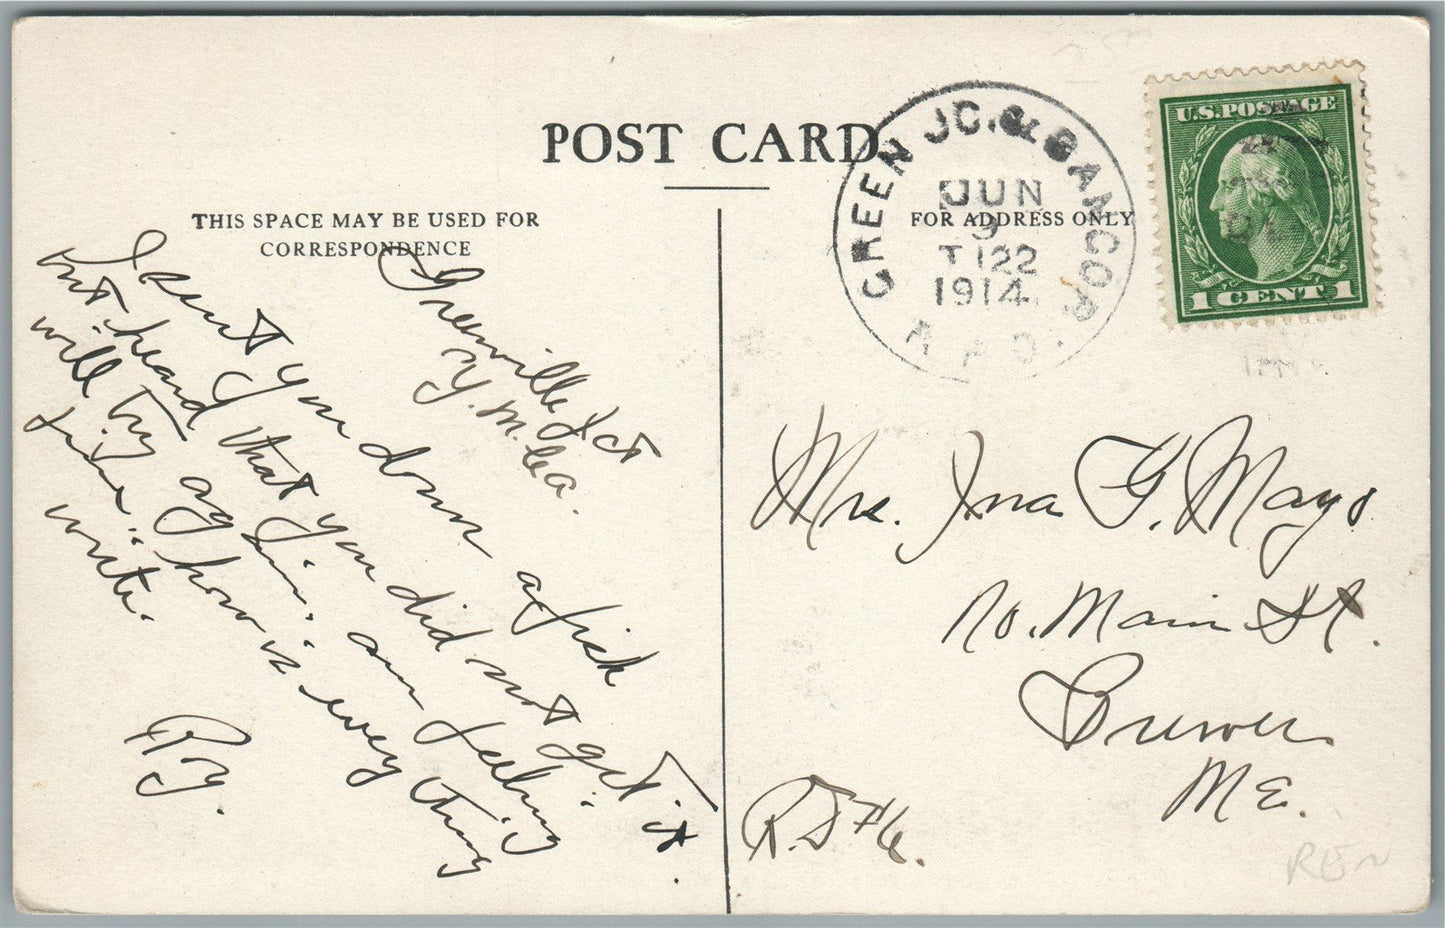 POST CARD
THIS SPACE MAY BE USED FOR
CORRESPONDENCE
FOR ADDRESS ONLY
GREEN JC. & BANGOR
JUN
9
T 122
1914
R P O
U.S. POSTAGE
1 CENT 1
Greenville Jct
Y.M.Ca.
I sent you down a fish
but heard that you did not get it.
will try again. am feeling
fine. how is every thing
write.
Ry.
Mrs. Ina G. Mayo
No. Main St.
Brewer
ME.